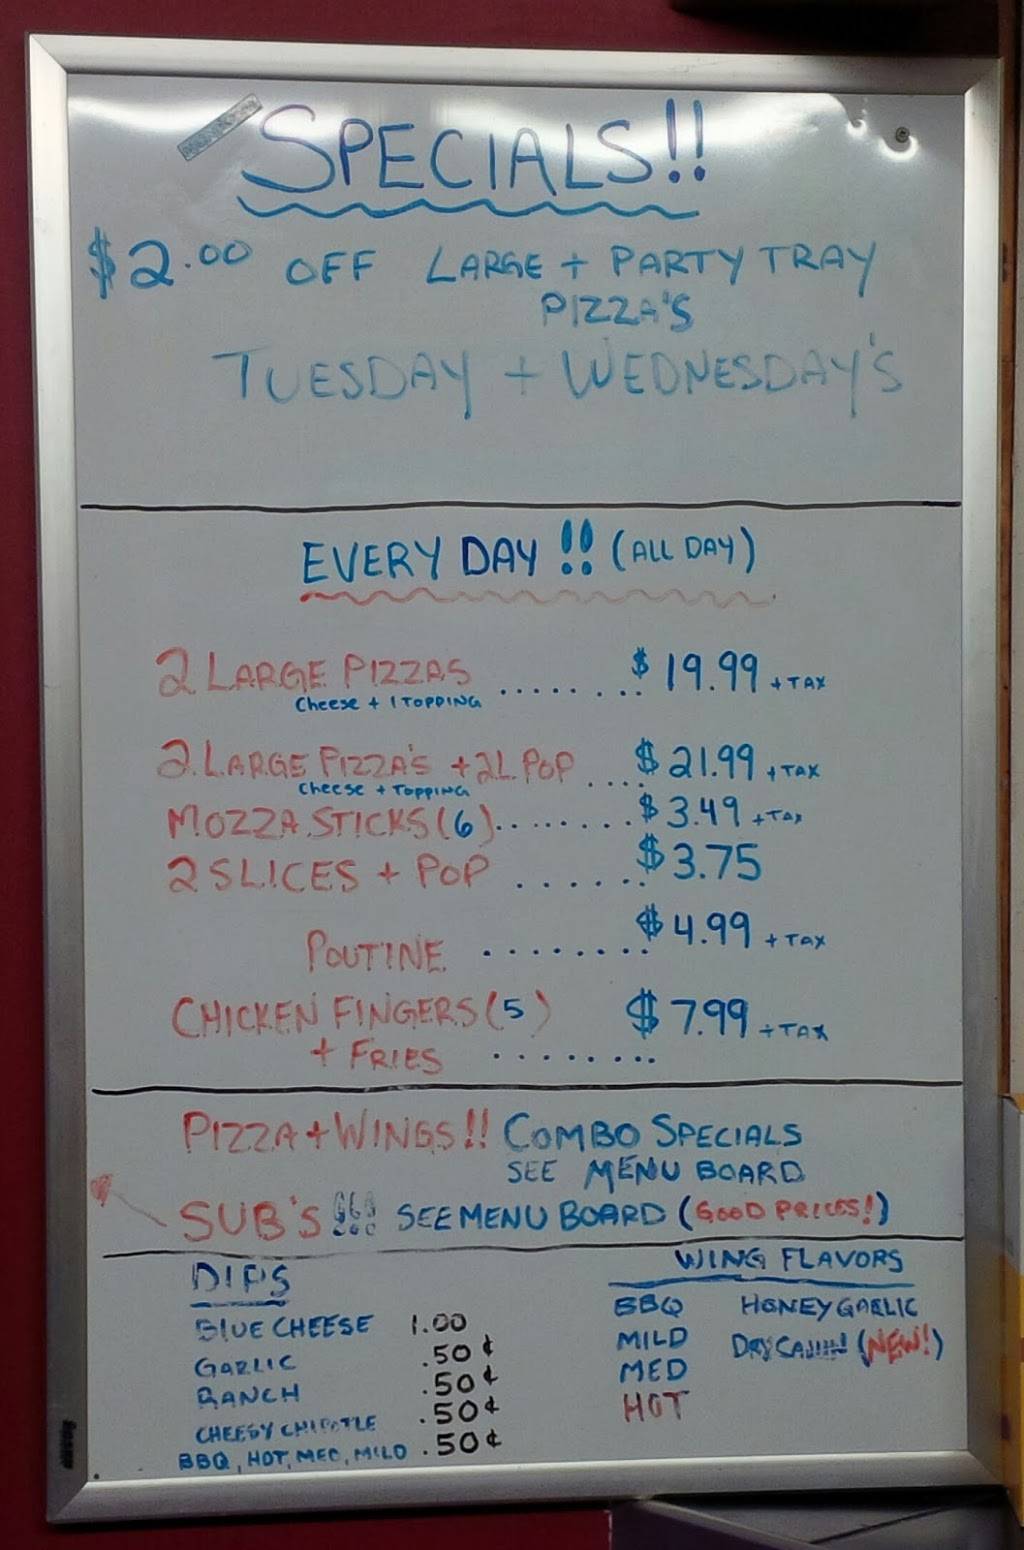 SPECIALS!!
$2.00 OFF LARGE + PARTY TRAY
PIZZA'S
TUESDAY + WEDNESDAY'S
EVERY DAY !! (ALL DAY)
2 LARGE PIZZAS ........ $19.99 + TAX
Cheese + 1 TOPPING
2 LARGE PIZZA'S + 2L POP .... $21.99 + TAX
Cheese + TOPPING
MOZZA STICKS (6)........ $3.49 + TAX
2 SLICES + POP ...... $3.75
POUTINE ........ $4.99 + TAX
CHICKEN FINGERS (5) $7.99 + TAX
+ FRIES ........
PIZZA + WINGS!! COMBO SPECIALS
SEE MENU BOARD
SUB'S !!! SEE MENU BOARD (GOOD PRICES!)
DIPS
BLUE CHEESE 1.00
GARLIC .50¢
RANCH .50¢
CHEESY CHIPOTLE .50¢
BBQ, HOT, MED, MILD .50¢
WING FLAVORS
BBQ HONEY GARLIC
MILD DRY CAJUN (NEW!)
MED
HOT